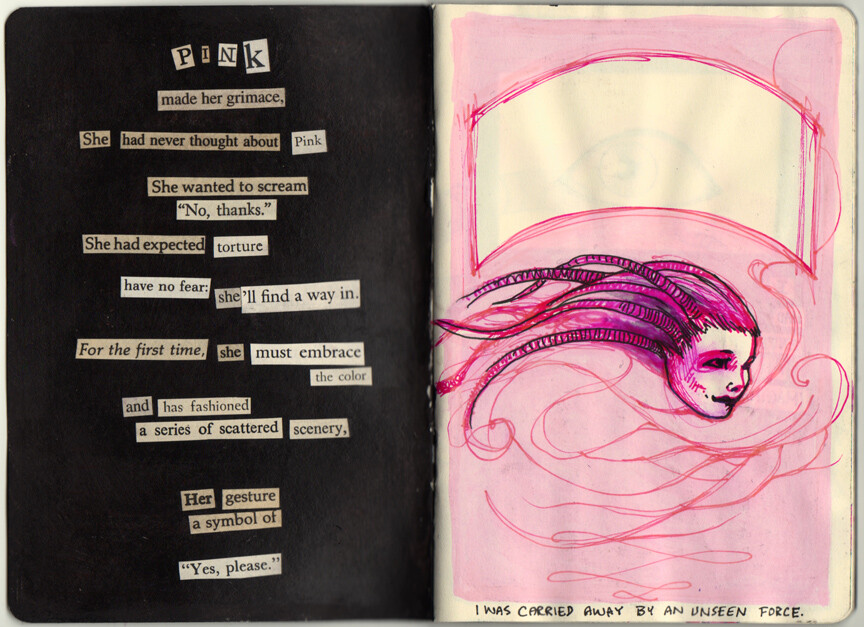 PINK
made her grimace,
She had never thought about Pink
She wanted to scream
“No, thanks.”
She had expected torture
have no fear: she'll find a way in.
For the first time, she must embrace
the color
and has fashioned
a series of scattered scenery,
Her gesture
a symbol of
“Yes, please.”
I WAS CARRIED AWAY BY AN UNSEEN FORCE.